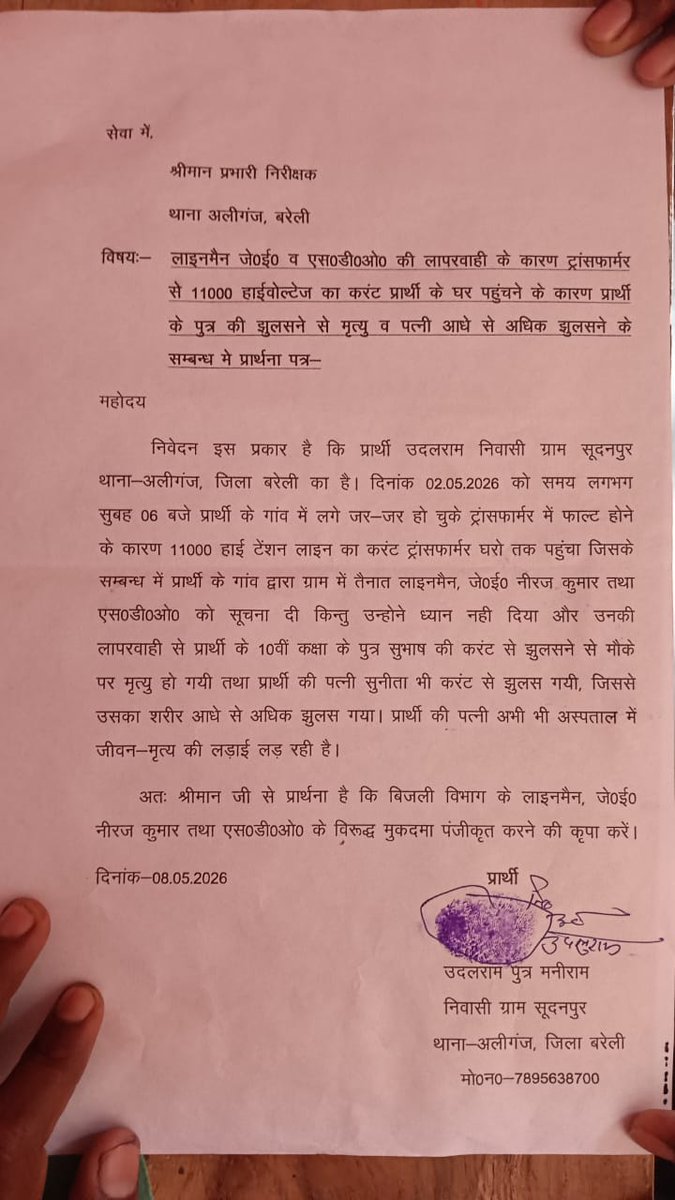 सेवा में,
श्रीमान प्रभारी निरीक्षक
थाना अलीगंज, बरेली
विषयः– लाइनमैन जे0ई0 व एस0डी0ओ0 की लापरवाही के कारण ट्रांसफार्मर
से 11000 हाईवोल्टेज का करंट प्रार्थी के घर पहुंचने के कारण प्रार्थी
के पुत्र की झुलसने से मृत्यु व पत्नी आधे से अधिक झुलसने के
सम्बन्ध मे प्रार्थना पत्र–
महोदय
निवेदन इस प्रकार है कि प्रार्थी उदलराम निवासी ग्राम सूदनपुर
थाना–अलीगंज, जिला बरेली का है। दिनांक 02.05.2026 को समय लगभग
सुबह 06 बजे प्रार्थी के गांव में लगे जर–जर हो चुके ट्रांसफार्मर में फाल्ट होने
के कारण 11000 हाई टेंशन लाइन का करंट ट्रांसफार्मर घरो तक पहुंचा जिसके
सम्बन्ध में प्रार्थी के गांव द्वारा ग्राम में तैनात लाइनमैन, जे0ई0 नीरज कुमार तथा
एस0डी0ओ0 को सूचना दी किन्तु उन्होने ध्यान नही दिया और उनकी
लापरवाही से प्रार्थी के 10वीं कक्षा के पुत्र सुभाष की करंट से झुलसने से मौके
पर मृत्यु हो गयी तथा प्रार्थी की पत्नी सुनीता भी करंट से झुलस गयी, जिससे
उसका शरीर आधे से अधिक झुलस गया। प्रार्थी की पत्नी अभी भी अस्पताल में
जीवन–मृत्य की लड़ाई लड़ रही है।
अतः श्रीमान जी से प्रार्थना है कि बिजली विभाग के लाइनमैन, जे0ई0
नीरज कुमार तथा एस0डी0ओ0 के विरूद्ध मुकदमा पंजीकृत करने की कृपा करें।
दिनांक–08.05.2026 प्रार्थी
उदलराम पुत्र मनीराम
निवासी ग्राम सूदनपुर
थाना–अलीगंज, जिला बरेली
मो0न0–7895638700